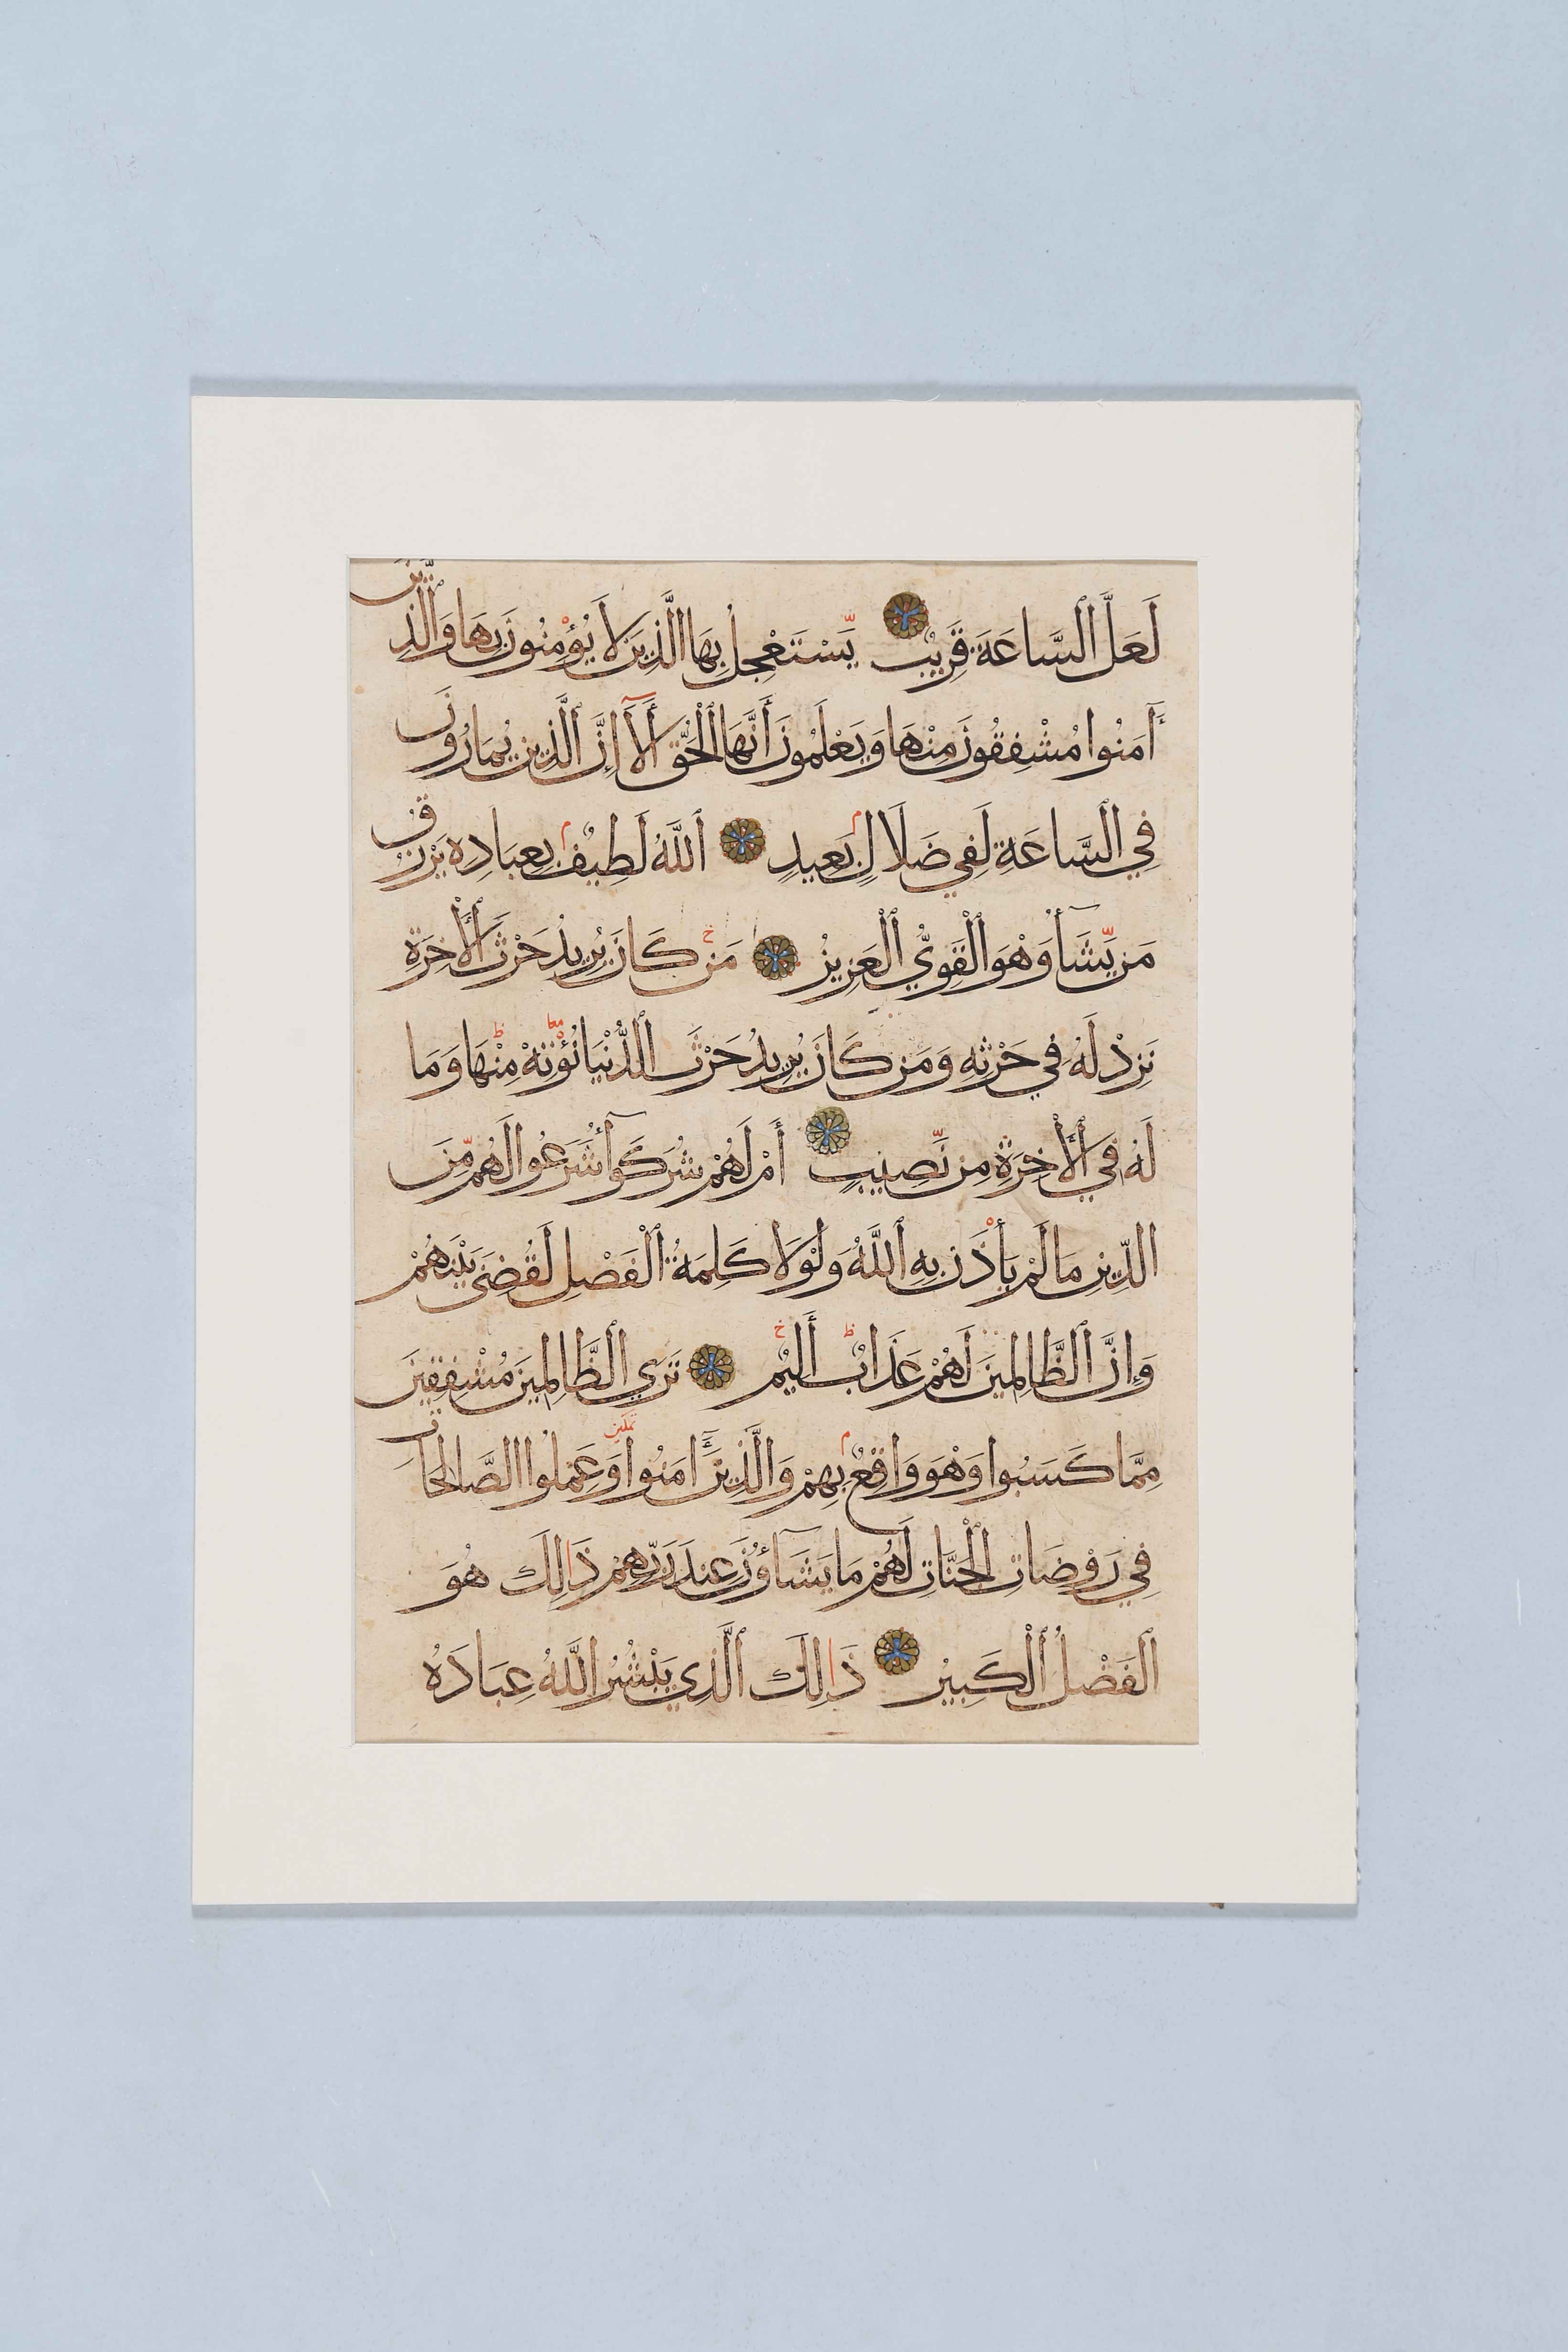 لَعَلَّ ٱلسَّاعَةَ قَرِيبٌ يَّسْتَعْجِلُ بِهَا ٱلَّذِينَ لَا يُؤْمِنُونَ بِهَا وَٱلَّذِينَ
آمَنُوا مُشْفِقُونَ مِنْهَا وَيَعْلَمُونَ أَنَّهَا ٱلْحَقُّ أَلَآ إِنَّ ٱلَّذِينَ يُمَارُونَ
فِي ٱلسَّاعَةِ لَفِي ضَلَالٍ بَعِيدٍ ٱللَّهُ لَطِيفٌ بِعِبَادِهِ يَرْزُقُ
مَن يَّشَآءُ وَهْوَ ٱلْقَوِيُّ ٱلْعَزِيزُ مَن كَانَ يُرِيدُ حَرْثَ ٱلْأَخِرَةِ
نَزِدْ لَهُ فِي حَرْثِهِ وَمَن كَانَ يُرِيدُ حَرْثَ ٱلدُّنْيَا نُؤْتِهْ مِنْهَا وَمَا
لَهُ فِي ٱلْأَخِرَةِ مِن نَّصِيبٍ أَمْ لَهُمْ شُرَكَٰٓؤُا شَرَعُوا لَهُم مِّنَ
ٱلدِّينِ مَا لَمْ يَأْذَن بِهِ ٱللَّهُ وَلَوْلَا كَلِمَةُ ٱلْفَصْلِ لَقُضِيَ بَيْنَهُمْ
وَإِنَّ ٱلظَّالِمِينَ لَهُمْ عَذَابٌ أَلِيمٌ تَرَى ٱلظَّالِمِينَ مُشْفِقِينَ
مِمَّا كَسَبُوا وَهْوَ وَاقِعٌ بِهِمْ وَٱلَّذِينَ ءَامَنُوا وَعَمِلُوا ٱلصَّالِحَاتِ
فِي رَوْضَاتِ ٱلْجَنَّاتِ لَهُم مَا يَشَآؤُنَ عِندَ رَبِّهِمْ ذَالِكَ هُوَ
ٱلْفَضْلُ ٱلْكَبِيرُ ذَالِكَ ٱلَّذِي يَبْشُرُ ٱللَّهُ عِبَادَهُ